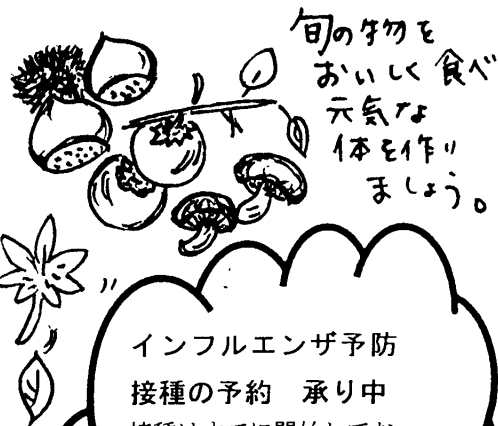 旬の物を
おいしく食べ
元気な
体を作り
ましょう。
インフルエンザ予防
接種の予約 承り中